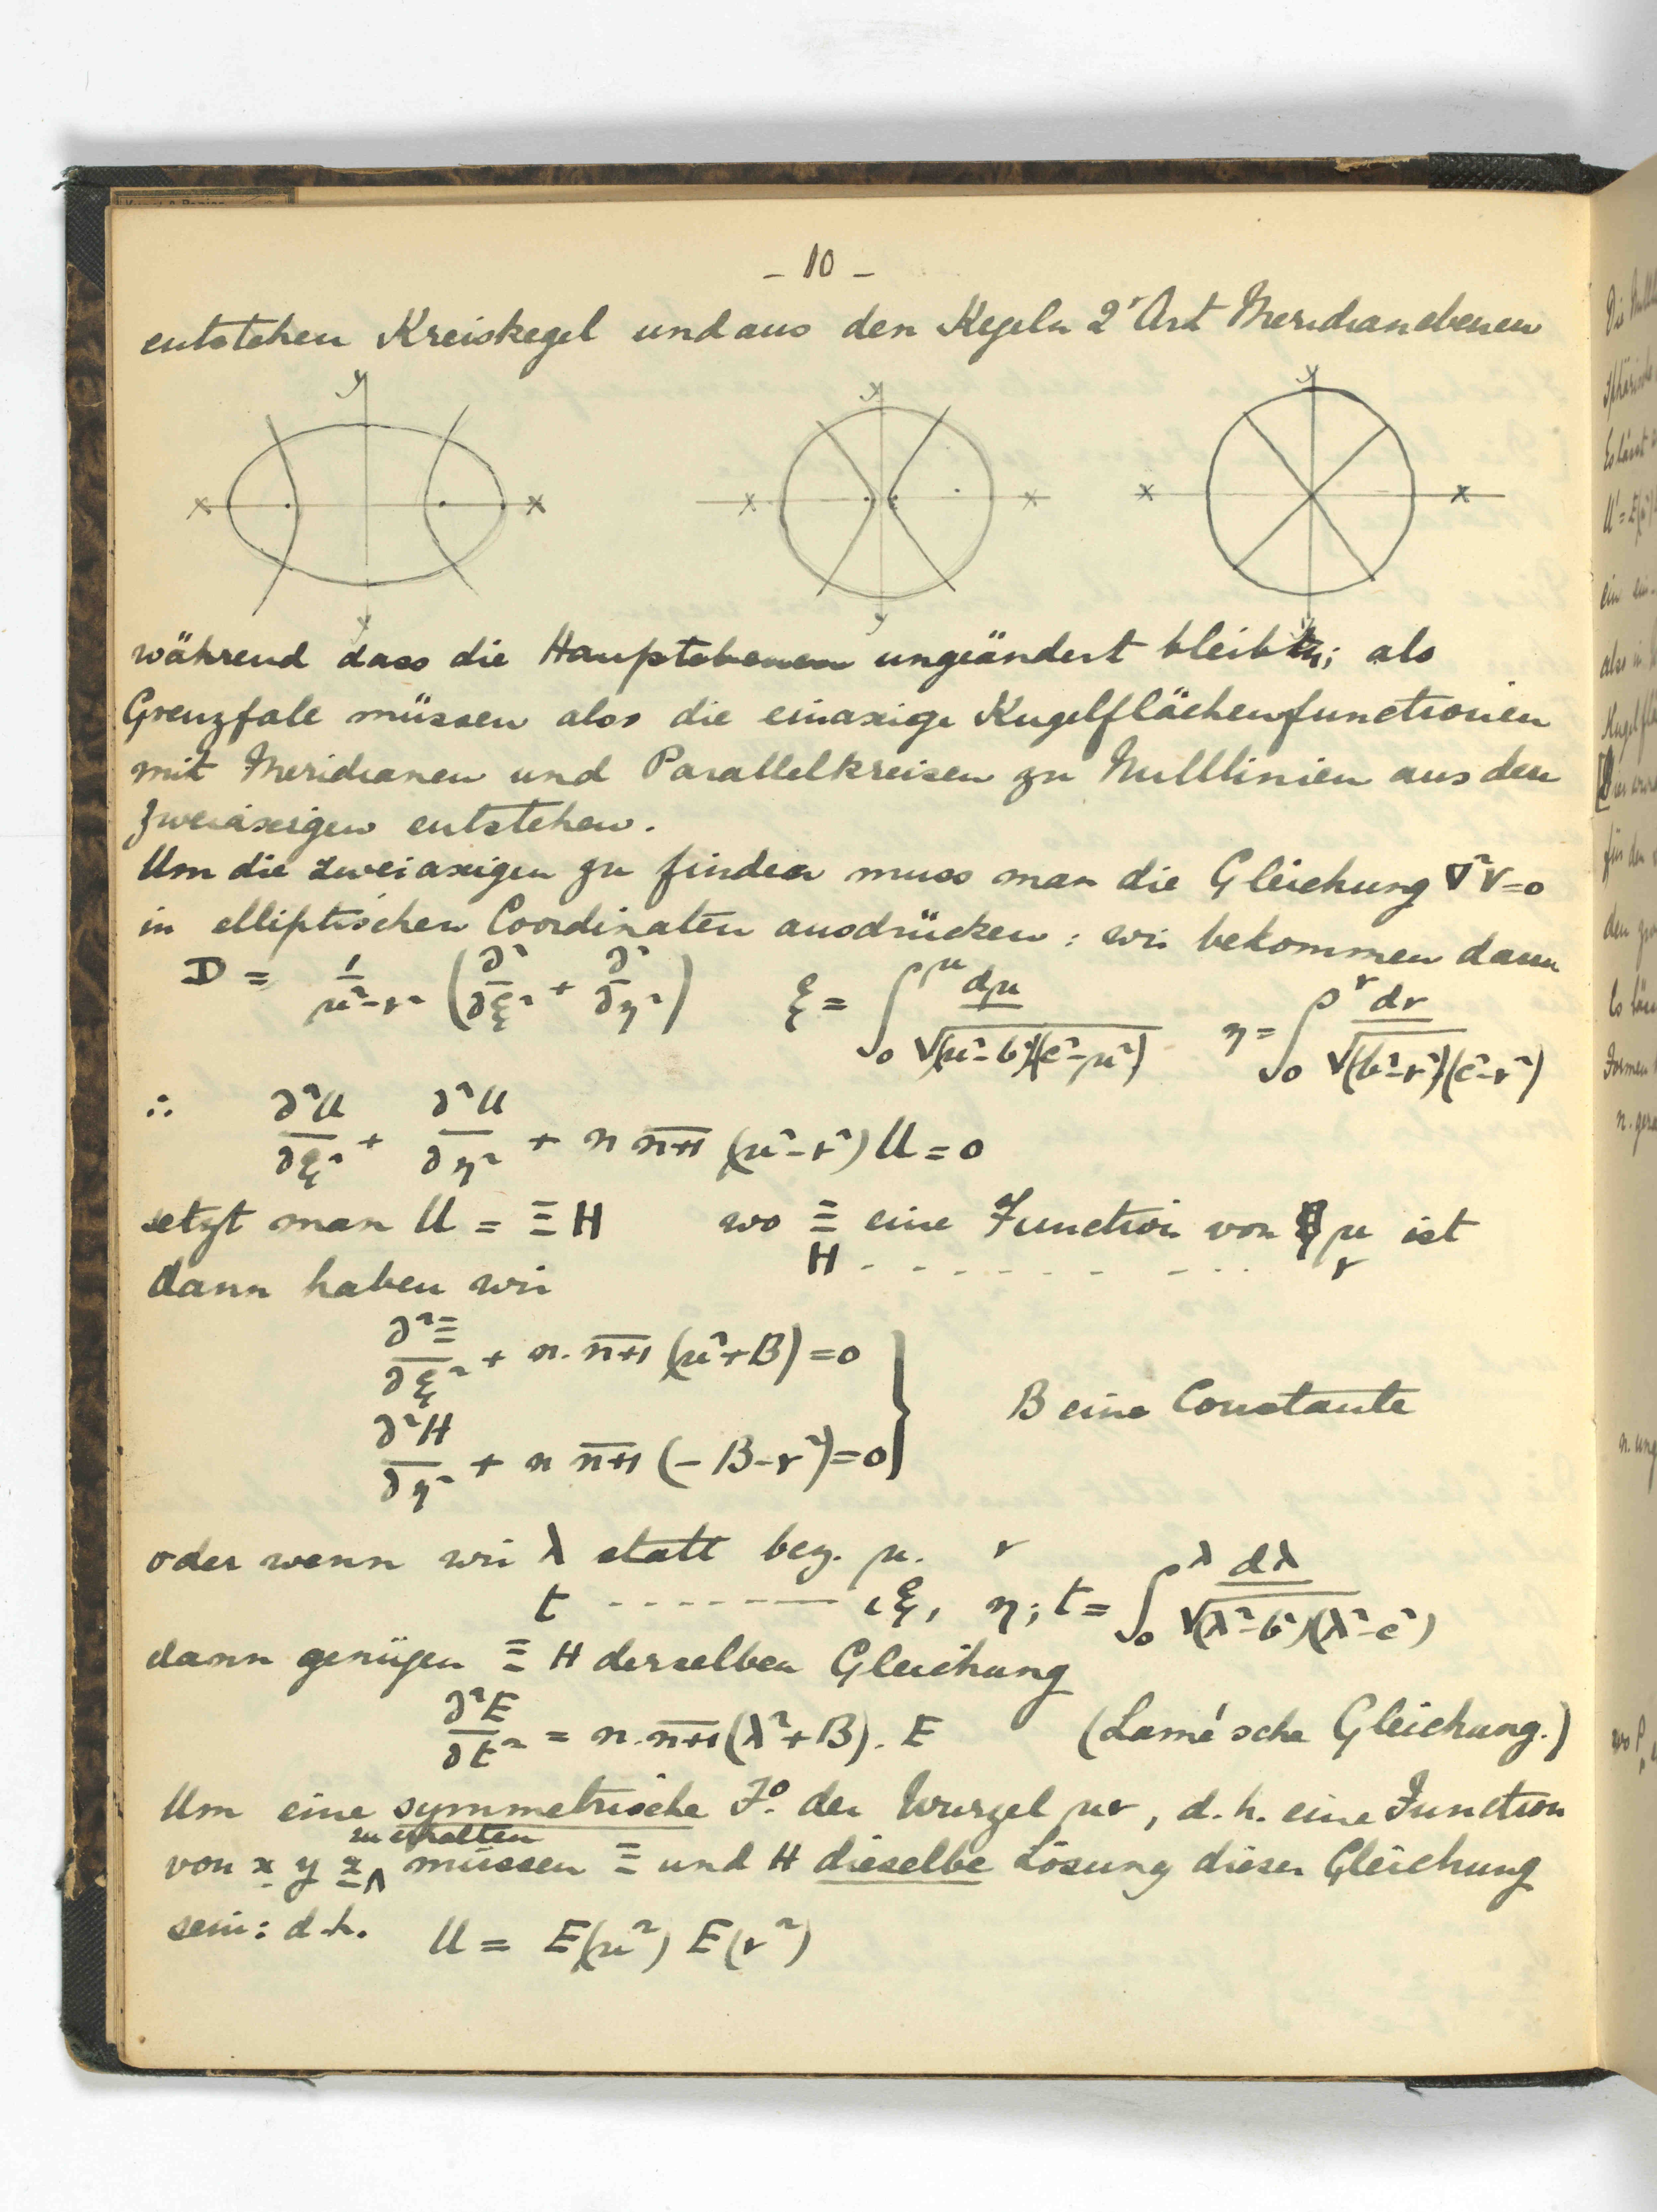 - 10 -
entstehen Kreiskegel und aus den Kegeln 2r Art Meridianebenen
y y y
x x x x x x
y y y
während dass die Hauptebenen ungeändert bleiben; als
Grenzfale müssen also die einaxige Kugelflächenfunctionen
mit Meridianen und Parallelkreisen zu Nulllinien aus den
zweiaxigen entstehen.
Um die zweiaxigen zu finden muss man die Gleichung ∇²V=0
in elliptischen Coordinaten ausdrücken: wir bekommen dann
D = 1/(μ²-ν²) (∂²/∂ξ² + ∂²/∂η²) ξ = ∫₀^μ dμ/√(μ²-b²)(c²-μ²) η = ∫₀^ν dν/√(b²-ν²)(c²-ν²)
∴ ∂²U/∂ξ² + ∂²U/∂η² + n n+1 (μ²-ν²) U = 0
setzt man U = Ξ H wo Ξ eine Function von μ ist
H - - - - - - - - - - - ν
dann haben wir
∂²Ξ/∂ξ² + n. n+1 (μ²+B) = 0
∂²H/∂η² + n n+1 (-B-ν²) = 0 } B eine Constante
oder wenn wir λ statt bez. μ. ν
t - - - - - - - - ιξ, η; t = ∫₀^λ dλ/√(λ²-b²)(λ²-c²)
dann genügen Ξ H derselben Gleichung
∂²E/∂t² = n. n+1 (λ²+B). E (Lamé'sche Gleichung.)
Um eine symmetrische Fo. der Wurzel μν, d.h. eine Function
zu erhalten
von x y z ∧ müssen Ξ und H dieselbe Lösung dieser Gleichung
sein: d.h. U = E(μ²) E(ν²)